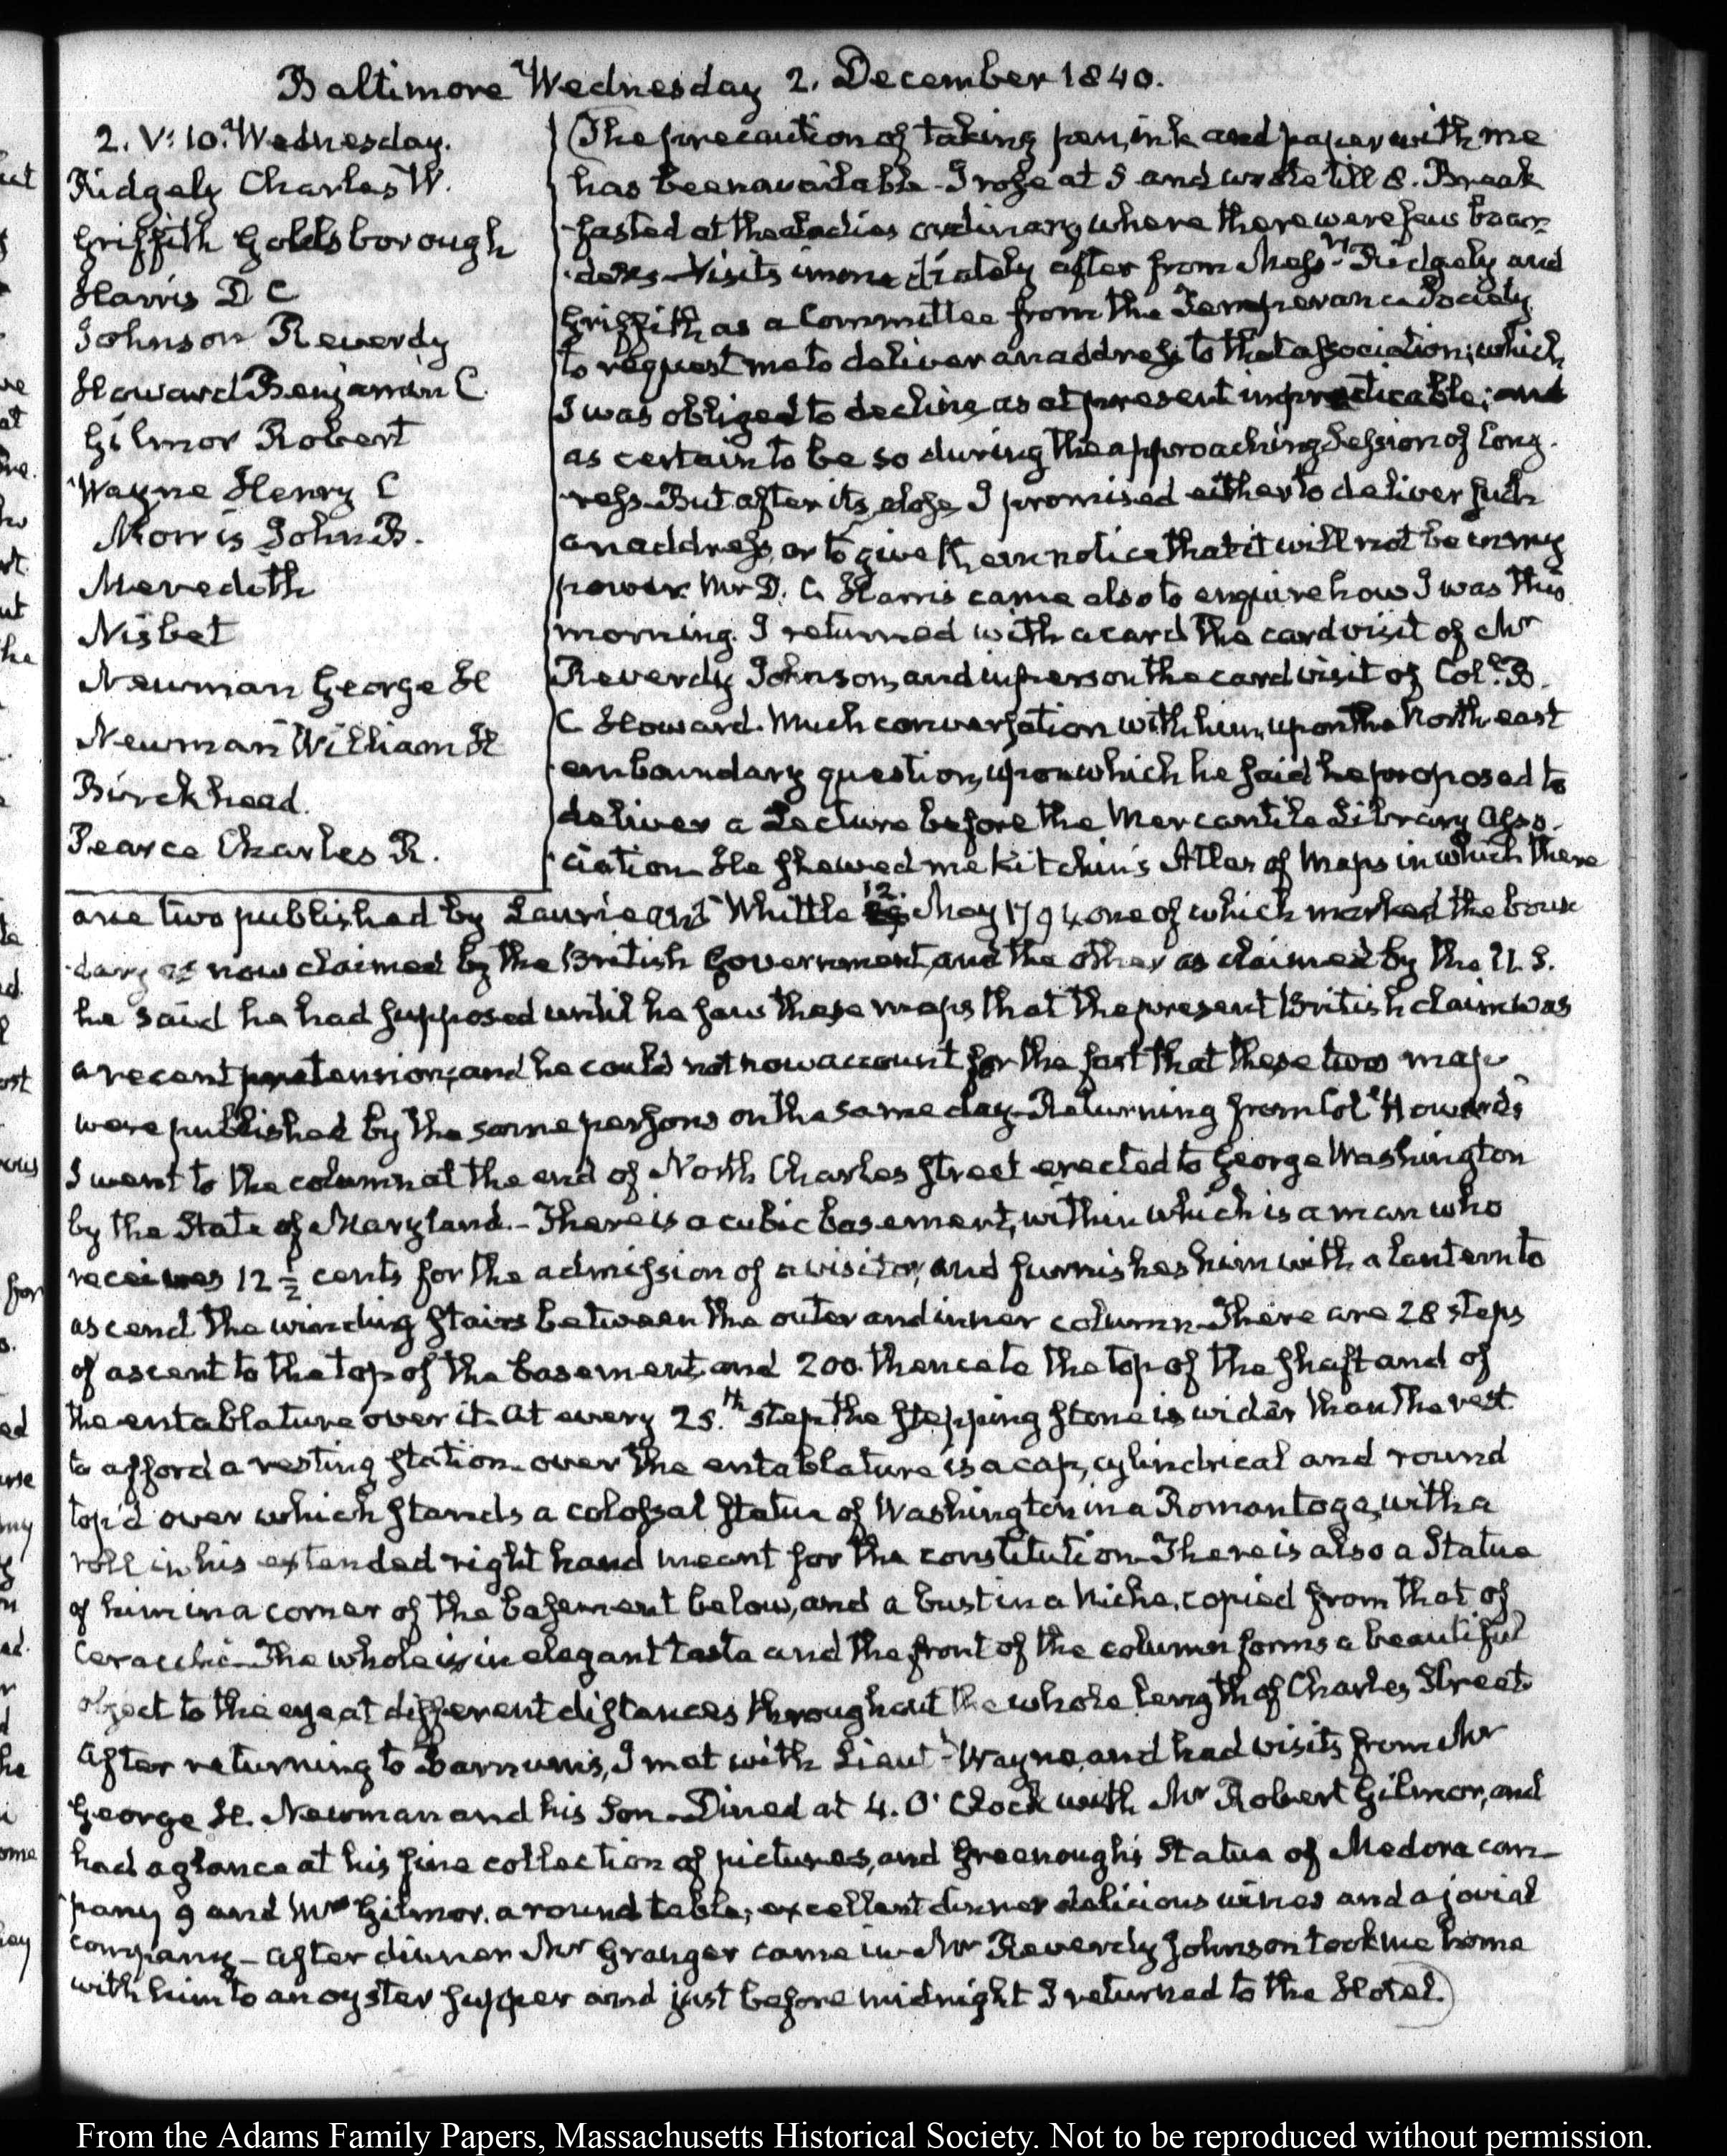 Baltimore Wednesday 2. December 1840.
2. V: 10. Wednesday.
Ridgely Charles W.
Griffith Goldsborough
Harris D C
Johnson Reverdy
Howard Benjamin C.
Gilmor Robert
Wayne Henry C
Morris John B.
Meredith
Nisbet
Newman George H
Newman William H
Birckhead.
Pearce Charles R.
The precaution of taking pen, ink and paper with me
has been available - I rose at 5 and wrote till 8. Break
-fasted at the Ladies ordinary where there were few boar-
-ders - Visits immediately after from Messrs. Ridgely and
Griffith, as a Committee from the Temperance Society
to request me to deliver an address to that association; which
I was obliged to decline, as at present impracticable; and
as certain to be so during the approaching Session of Cong-
-ress - But after its close, I promised either to deliver such
an address, or to give them notice that it will not be in my
power. Mr D. C. Harris came also to enquire how I was this
morning. I returned with a card the card visit of Mr
Reverdy Johnson, and in person the card visit of Coll. B.
C Howard. Much conversation with him, upon the North east
-ern boundary question, upon which he said he proposed to
deliver a Lecture before the Mercantile Library Asso-
-ciation - He shewed me Kitchin's Atlas of Maps in which there
are two published by Laurie and Whittle 12. May 1794 one of which marked the boun
-dary as now claimed by the British Government, and the other as claimed by the U. S.
he said he had supposed until he saw these maps that the present British claim was
a recent pretension; and he could not now account for the fact that these two maps
were published by the same persons on the same day - Returning from Coll Howard's
I went to the column at the end of North Charles street erected to George Washington
by the State of Maryland. - There is a cubic basement, within which is a man who
receives 12 ½ cents for the admission of a visitor, and furnishes him with a lantern to
ascend the winding stairs between the outer and inner column - There are 28 steps
of ascent to the top of the basement, and 200. thence to the top of the shaft and of
the entablature over it - at every 25.th step the stepping stone is wider than the rest
to afford a resting station - over the entablature is a cap, cylindrical and round
top'd over which stands a colossal statue of Washington in a Roman toga, with a
roll in his extended right hand meant for the constitution - There is also a Statue
of him in a corner of the basement below, and a bust in a niche, copied from that of
Ceracchi - The whole is in elegant taste and the front of the column forms a beautiful
object to the eye at different distances throughout the whole length of Charles Street
After returning to Barnum's, I met with Lieut. Wayne, and had visits from Mr
George H. Newman and his Son - Dined at 4. O' Clock with Mr Robert Gilmor, and
had a glance at his fine collection of pictures, and Greenough's Statue of Medora com-
-pany 9 and Mrs Gilmor. a round table; excellent dinner delicious wines and a jovial
company - after dinner Mr Granger came in - Mr Reverdy Johnson took me home
with him to an oyster supper and just before midnight I returned to the Hotel.
From the Adams Family Papers, Massachusetts Historical Society. Not to be reproduced without permission.